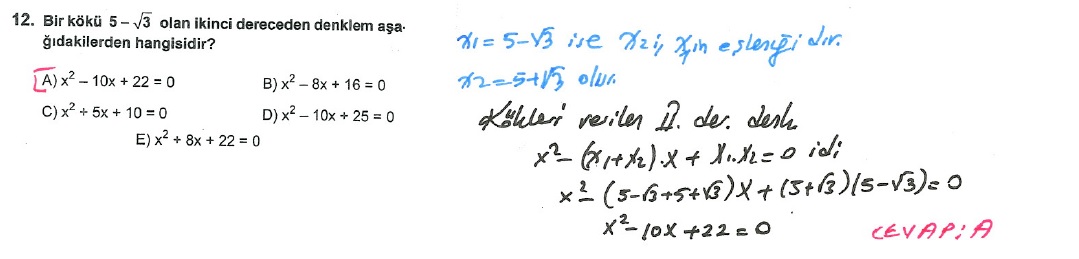 12. Bir kökü 5 – √3 olan ikinci dereceden denklem aşa-
ğıdakilerden hangisidir?
A) x² – 10x + 22 = 0
B) x² – 8x + 16 = 0
C) x² + 5x + 10 = 0
D) x² – 10x + 25 = 0
E) x² + 8x + 22 = 0
x1 = 5-√3 ise x2 i, x1 in eşleniği dir.
x2 = 5+√3 olur.
Kökleri verilen II. der. denk
x² - (x1+x2).x + x1.x2 = 0 idi
x² - (5-√3+5+√3)x + (5+√3)(5-√3) = 0
x² - 10x + 22 = 0
CEVAP: A